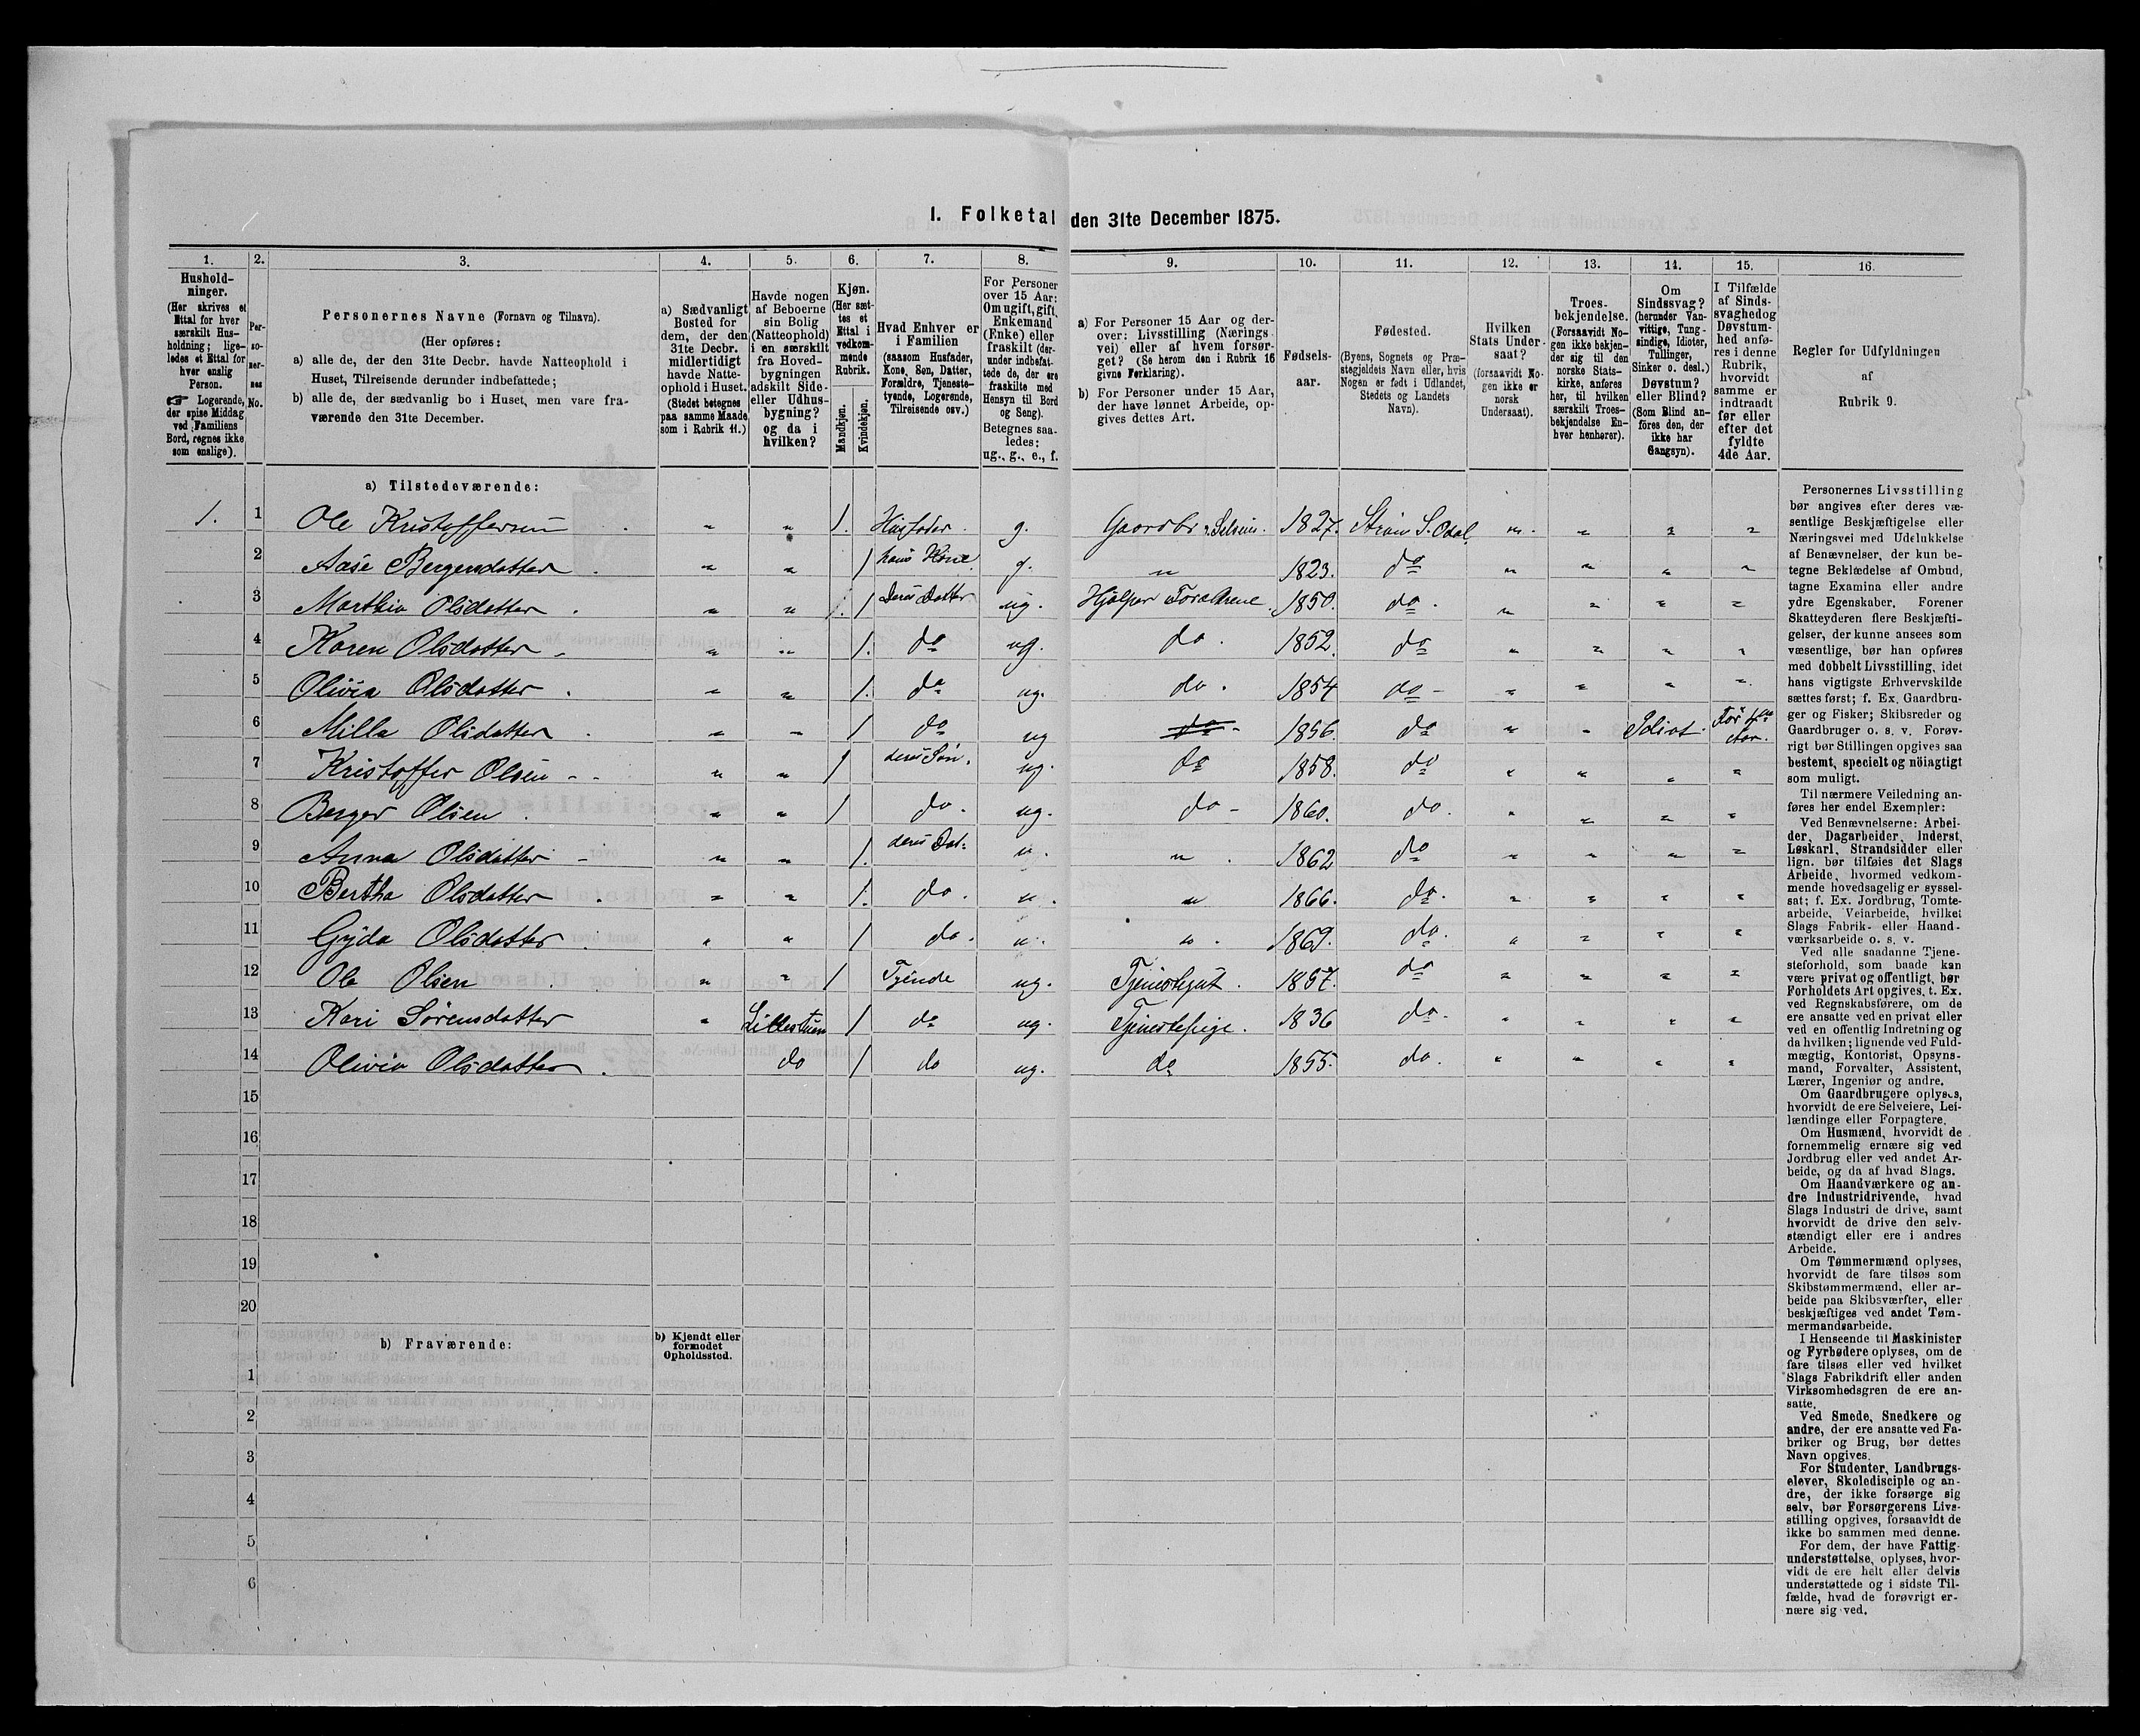 I. Folketal den 31te December 1875.
1. 2. 3. 4. 5. 6. 7. 8. 9. 10. 11. 12. 13. 14. 15. 16.
Hushold-
ninger.
(Her skrives et
Ettal for hver
særskilt Hus-
holdning; lige-
ledes et Ettal for
hver enslig
Person.
☞ Logerende,
der spise Middag
ved Familiens
Bord, regnes ikke
som enslige).
Per-
so-
ner-
nes
No.
Personernes Navne (Fornavn og Tilnavn).
(Her opføres:
a) alle de, der den 31te Decbr. havde Natteophold i
Huset, Tilreisende derunder indbefattede;
b) alle de, der sædvanlig bo i Huset, men vare fra-
værende den 31te December.
a) Sædvanligt
Bosted for
dem, der den
31te Decbr.
midlertidigt
havde Natte-
ophold i Huset.
(Stedet betegnes
paa samme Maade
som i Rubrik 11.)
Havde nogen
af Beboerne
sin Bolig
(Natteophold)
i en særskilt
fra Hoved-
bygningen
adskilt Side-
eller Udhus-
bygning?
og da i
hvilken?
Kjøn.
(Her sæt-
tes et
Ettal i
vedkom-
mende
Rubrik.
Mandkjøn.
Kvindekjøn.
Hvad Enhver er
i Familien
(saasom Husfader,
Kone, Søn, Datter,
Forældre, Tjeneste-
tyende, Logerende,
Tilreisende osv.)
For Personer
over 15 Aar:
Om ugift, gift,
Enkemand
(Enke) eller
fraskilt (der-
under indbefat-
tede de, der ere
fraskilte med
Hensyn til Bord
og Seng).
Betegnes saa-
ledes:
ug., g., e., f.
a) For Personer 15 Aar og der-
over: Livsstilling (Nærings-
vei) eller af hvem forsør-
get? (Se herom den i Rubrik 16
givne Forklaring).
b) For Personer under 15 Aar,
der have lønnet Arbeide, op-
gives dettes Art.
Fødsels-
aar.
Fødested.
(Byens, Sognets og Præ-
stegjeldets Navn eller, hvis
Nogen er født i Udlandet,
Stedets og Landets
Navn).
Hvilken
Stats Under-
saat?
(forsaavidt No-
gen ikke er
norsk
Undersaat).
Troes-
bekjendelse.
(Forsaavidt No-
gen ikke bekjen-
der sig til den
norske Stats-
kirke, anføres
her, til hvilken
særskilt Troes-
bekjendelse En-
hver henhører).
Om
Sindssvag?
(herunder Van-
vittige, Tung-
sindige, Idioter,
Tullinger,
Sinker o. desl.)
Døvstum?
eller Blind?
(Som Blind an-
föres den, der
ikke har
Gangsyn).
I Tilfælde
af Sinds-
svaghed og
Døvstum-
hed anfø-
res i denne
Rubrik,
hvorvidt
samme er
indtraadt
før eller
efter det
fyldte
4de Aar.
Regler for Udfyldningen
af
Rubrik 9.
a) Tilstedeværende:
1. 1 Ole Kristoffersen „ „ 1. Husfader. g. Gaardbr. Selveier. 1827. Strøm S. Odal. „ „ „ „
2 Aase Bergersdatter „ „ 1 hans Kone g. „ 1823. do „ „ „ „
3 Marthia Olsdatter „ „ 1 Deres Datter ug. Hjælper Forældrene. 1850. do „ „ „ „
4 Karen Olsdatter „ „ 1. do ug. do. 1852. do „ „ „ „
5 Olivia Olsdatter „ „ 1. do ug. do. 1854 do „ „ „ „
6 Milla Olsdatter „ „ 1 do ug do 1856. do „ „ Idiot. Før 4de Aar.
7 Kristoffer Olsen „ „ 1 deres Søn. ug. do 1858. do „ „ „ „
8 Berger Olsen „ „ 1 do. ug. do 1860. do. „ „ „ „
9 Anna Olsdatter „ „ 1. deres Dat. „ „ 1862 do „ „ „ „
10 Bertha Olsdatter „ „ 1. do. „ „ 1866. do. „ „ „ „
11 Gyda Olsdatter „ „ 1 do. „ „ 1869. do. „ „ „ „
12 Ole Olsen „ „ 1 Tjende ug. Tjenestegut. 1857. do „ „ „ „
13 Kari Sørensdatter „ Lillestuen 1 do ug. Tjenestepige. 1836 do. „ „ „ „
14 Olivia Olsdatter. do 1 do ug. do 1855. do. „ „ „ „
15
16
17
18
19
20
b) Fraværende:
b) Kjendt eller
formodet
Opholdssted.
1
2
3
4
5
6
Personernes Livsstilling
bør angives efter deres væ-
sentlige Beskjæftigelse eller
Næringsvei med Udelukkelse
af Benævnelser, der kun be-
tegne Beklædelse af Ombud,
tagne Examina eller andre
ydre Egenskaber. Forener
Skatteyderen flere Beskjæfti-
gelser, der kunne ansees som
væsentlige, bør han opføres
med dobbelt Livsstilling, idet
hans vigtigste Erhvervskilde
sættes først; f. Ex. Gaardbru-
ger og Fisker; Skibsreder og
Gaardbruger o. s. v. Forøv-
rigt bør Stillingen opgives saa
bestemt, specielt og nöiagtigt
som muligt.
Til nærmere Veiledning an-
føres her endel Exempler:
Ved Benævnelserne: Arbei-
der, Dagarbeider, Inderst,
Løskarl, Strandsidder eller
lign. bør tilføies det Slags
Arbeide, hvormed vedkom-
mende hovedsagelig er syssel-
sat; f. Ex. Jordbrug, Tomte-
arbeide, Veiarbeide, hvilket
Slags Fabrik- eller Haand-
værksarbeide o. s. v.
Ved alle saadanne Tjene-
steforhold, som baade kan
være privat og offentligt, bør
Forholdets Art opgives, t. Ex.
ved Regnskabsførere, om de
ere ansatte ved en privat eller
ved en offentlig Indretning og
da hvilken; lignende ved Fuld-
mægtig, Kontorist, Opsyns-
mand, Forvalter, Assistent,
Lærer, Ingeniør og andre.
Om Gaardbrugere oplyses,
hvorvidt de ere Selveiere, Lei-
lændinge eller Forpagtere.
Om Husmænd, hvorvidt de
fornemmelig ernære sig ved
Jordbrug eller ved andet Ar-
beide, og da af hvad Slags.
Om Haandværkere og an-
dre Industridrivende, hvad
Slags Industri de drive, samt
hvorvidt de drive den selv-
stændigt eller ere i andres
Arbeide.
Om Tømmermænd oplyses,
hvorvidt de fare tilsøs som
Skibstømmermænd, eller ar-
beide paa Skibsværfter, eller
beskjæftiges ved andet Tøm-
mermandsarbeide.
I Henseende til Maskinister
og Fyrbødere oplyses, om de
fare tilsøs eller ved hvilket
Slags Fabrikdrift eller anden
Virksomhedsgren de ere an-
satte.
Ved Smede, Snedkere og
andre, der ere ansatte ved Fa-
briker og Brug, bør dettes
Navn opgives.
For Studenter, Landbrugs-
elever, Skoledisciple og an-
dre, der ikke forsørge sig
selv, bør Forsørgerens Livs-
stilling opgives, forsaavidt de
ikke bo sammen med denne.
For dem, der have Fattig-
understøttelse, oplyses, hvor-
vidt de ere helt eller delvis
understøttede og i sidste Til-
fælde, hvad de forøvrigt er-
nære sig ved.